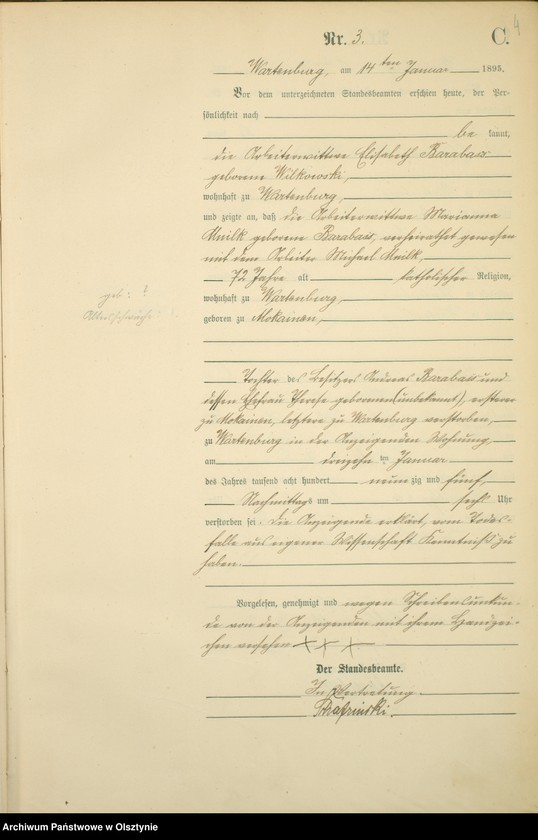 4
Nr. 3. C.
Wartenburg, am 14 ten Januar 1895.
Vor dem unterzeichneten Standesbeamten erschien heute, der Per-
sönlichkeit nach
be kannt,
die Arbeiterwittwe Elisabeth Barabas
geborene Wilkowski,
wohnhaft zu Wartenburg,
und zeigte an, daß die Arbeiterwittwe Marianna
geborene Barabas, verheirathet gewesen
mit dem Arbeiter Michael
72 Jahre alt, katholischer Religion,
wohnhaft zu Wartenburg,
geboren zu Mokainen,
geb: ?
Altersschwäche
Tochter des Besitzers Andreas Barabas und
dessen Ehefrau Therese geborenen (unbekannt), ersterer
zu Mokainen, letztere zu Wartenburg verstorben,
zu Wartenburg in der Anzeigenden Wohnung,
am dreizehn ten Januar
des Jahres tausend acht hundert neun zig und fünf,
Nachmittags um sechs Uhr
verstorben sei. Die Anzeigende erklärt, vom Todes-
falle aus eigener Wissenschaft Kenntniß zu
haben.
Vorgelesen, genehmigt und wegen Schreibensunkun-
de von der Anzeigenden mit ihrem Handzei-
chen versehen + + +
Der Standesbeamte.
In Vertretung
Archiwum Państwowe w Olsztynie